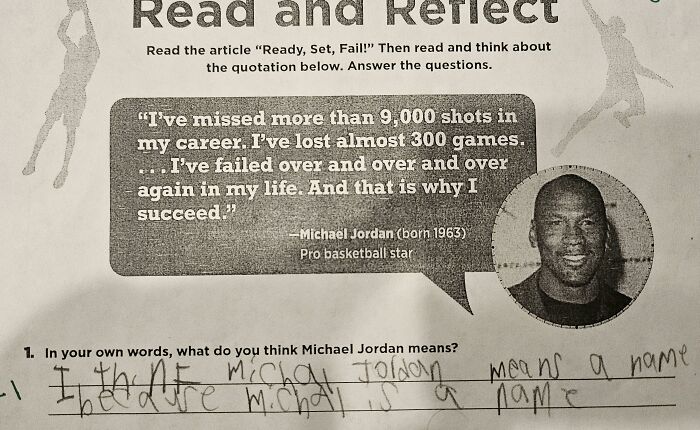 Read and Reflect
Read the article “Ready, Set, Fail!” Then read and think about
the quotation below. Answer the questions.
“I’ve missed more than 9,000 shots in
my career. I’ve lost almost 300 games.
. . . I’ve failed over and over and over
again in my life. And that is why I
succeed.”
—Michael Jordan (born 1963)
Pro basketball star
1. In your own words, what do you think Michael Jordan means?
I think Michal Joldan means a name
-1
because Michal is a name